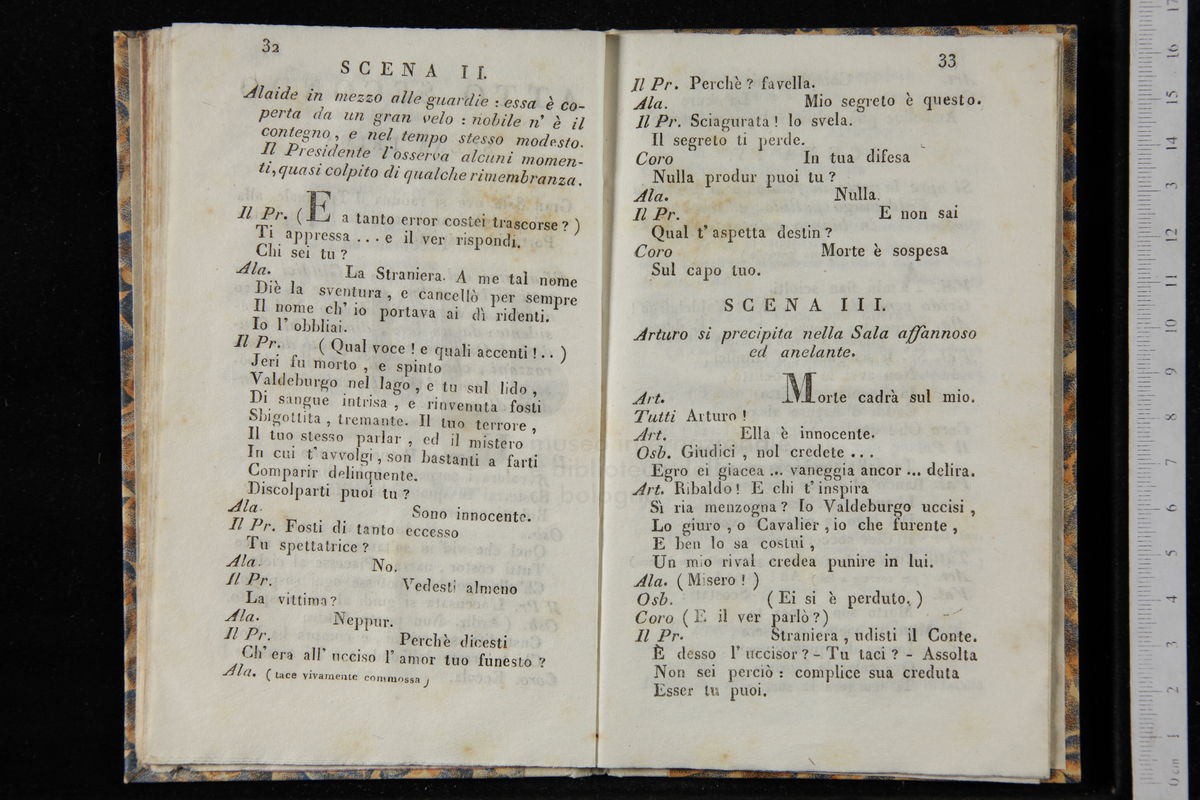 32
SCENA II.
Alaide in mezzo alle guardie : essa è co-
perta da un gran velo : nobile n' è il
contegno, e nel tempo stesso modesto.
Il Presidente l'osserva alcuni momen-
ti, quasi colpito di qualche rimembranza.
Il Pr. (E a tanto error costei trascorse ? )
Ti appressa ... e il ver rispondi.
Chi sei tu ?
Ala. La Straniera. A me tal nome
Diè la sventura , e cancellò per sempre
Il nome ch' io portava ai dì ridenti.
Io l' obbliai.
Il Pr. ( Qual voce ! e quali accenti ! .. )
Jeri fu morto , e spinto
Valdeburgo nel lago , e tu sul lido ,
Di sangue intrisa , e rinvenuta fosti
Sbigottita , tremante. Il tuo terrore ,
Il tuo stesso parlar , ed il mistero
In cui t' avvolgi , son bastanti a farti
Comparir delinquente.
Discolparti puoi tu ?
Ala. Sono innocente.
Il Pr. Fosti di tanto eccesso
Tu spettatrice ?
Ala. No.
Il Pr. Vedesti almeno
La vittima ?
Ala. Neppur.
Il Pr. Perchè dicesti
Ch' era all' ucciso l' amor tuo funesto ?
Ala. ( tace vivamente commossa )
33
Il Pr. Perchè ? favella.
Ala. Mio segreto è questo.
Il Pr. Sciagurata ! lo svela.
Il segreto ti perde.
Coro In tua difesa
Nulla produr puoi tu ?
Ala. Nulla.
Il Pr. E non sai
Qual t' aspetta destin ?
Coro Morte è sospesa
Sul capo tuo.
SCENA III.
Arturo si precipita nella Sala affannoso
ed anelante.
Art. Morte cadrà sul mio.
Tutti Arturo !
Art. Ella è innocente.
Osb. Giudici , nol credete ...
Egro ei giacea ... vaneggia ancor ... delira.
Art. Ribaldo ! E chi t' inspira
Sì ria menzogna ? Io Valdeburgo uccisi ,
Lo giuro , o Cavalier , io che furente ,
E ben lo sa costui ,
Un mio rival credea punire in lui.
Ala. ( Misero ! )
Osb. ( Ei si è perduto. )
Coro ( E il ver parlò ? )
Il Pr. Straniera , udisti il Conte.
È desso l' uccisor ? - Tu taci ? - Assolta
Non sei perciò : complice sua creduta
Esser tu puoi.